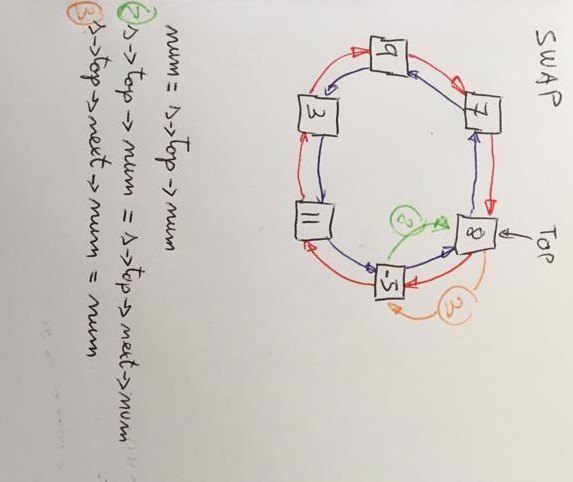 SWAP
TOP
7
8
3
2
9
-5
3
11
num = s->top->num
2 s->top->num = s->top->next->num
3 s->top->next->num = num